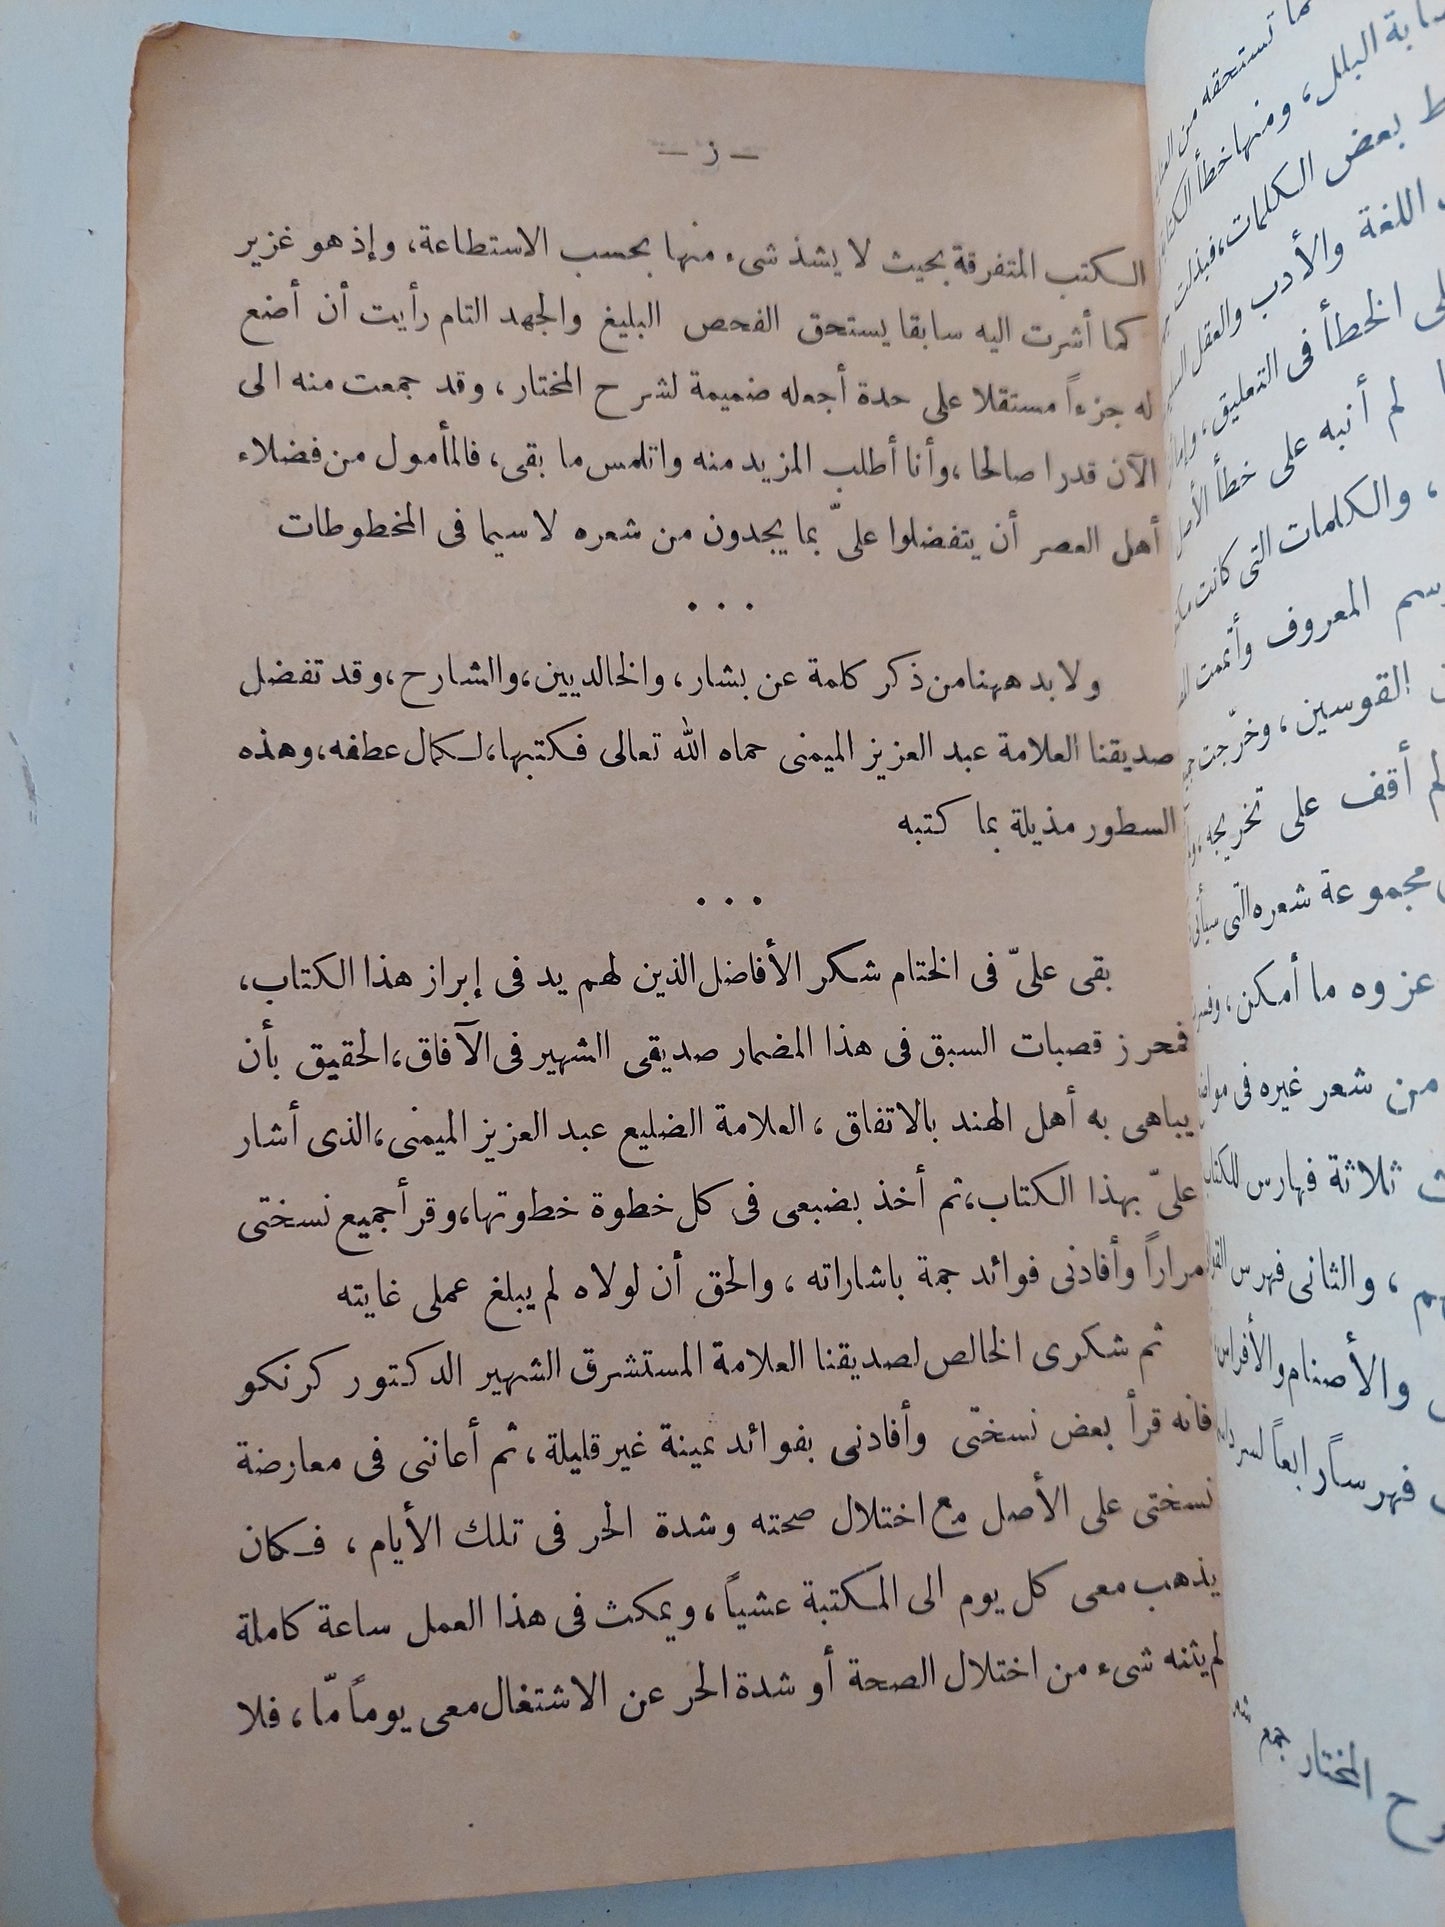 — ز —
الكتب المتفرقة بحيث لا يشذ شىء منها بحسب الاستطاعة، وإذ هو غزير
كما أشرت اليه سابقا يستحق الفحص البليغ والجهد التام رأيت أن أضع
له جزءاً مستقلا على حدة أجعله ضميمة لشرح المختار، وقد جمعت منه الى
الآن قدرا صالحا، وأنا أطلب المزيد منه واتلمس ما بقى، فالمأمول من فضلاء
أهل العصر أن يتفضلوا علىّ بما يجدون من شعره لا سيما فى المخطوطات
• • •
ولا بد ههنا من ذكر كلمة عن بشار، والخالديين، والشارح، وقد تفضل
صديقنا العلامة عبد العزيز الميمنى حماه الله تعالى فكتبها، لكمال عطفه، وهذه
السطور مذيلة بما كتبه
• • •
بقى علىّ فى الختام شكر الأفاضل الذين لهم يد فى إبراز هذا الكتاب،
فمحرز قصبات السبق فى هذا المضمار صديقى الشهير فى الآفاق، الحقيق بأن
يباهى به أهل الهند بالاتفاق، العلامة الضليع عبد العزيز الميمنى، الذى أشار
علىّ بهذا الكتاب، ثم أخذ بضبعى فى كل خطوة خطوتها، وقرأ جميع نسختى
مراراً وأفادنى فوائد جمة باشاراته، والحق أن لولاه لم يبلغ عملى غايته
ثم شكرى الخالص لصديقنا العلامة المستشرق الشهير الدكتور كرنكو
فانه قرأ بعض نسختى وأفادنى بفوائد ثمينة غير قليلة، ثم أعاننى فى معارضة
نسختى على الأصل مع اختلال صحته وشدة الحر فى تلك الأيام، فكان
يذهب معى كل يوم الى المكتبة عشياً، ويمكث فى هذا العمل ساعة كاملة
لم يثنه شىء من اختلال الصحة أو شدة الحر عن الاشتغال معى يوماً مّا، فلا
تستحقه من
البلل، ومنها خطأ
بعض الكلمات، فبذلت
اللغة والأدب والعقل
الخطأ فى التعليق،
لم أنبه على خطأ الأصل
، والكلمات التى كانت
المعروف وأتممت
القوسين، وخرّجت
لم أقف على تخريجه
مجموعة شعره التى سيأتى
عزوه ما أمكن،
من شعر غيره فى
ثلاثة فهارس للكتاب
، والثانى فهرس
والأصنام والأفراس
فهرساً رابعاً لسرد
المختار جمع